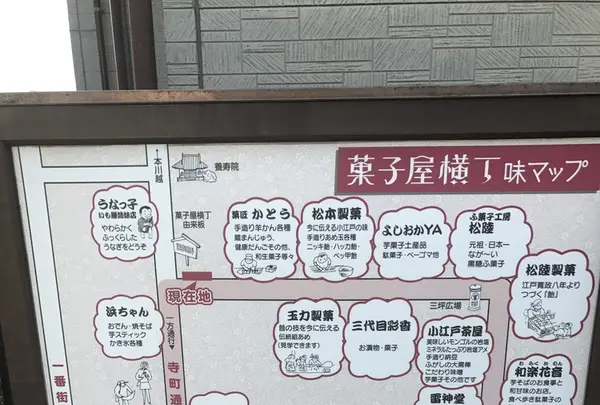 菓子屋横丁味マップ
↑本川越
養寿院
うなっ子
いも膳姉妹店
やわらかく
ふっくらした
うなぎをどうぞ
菓子屋横丁
由来板
菓匠 かとう
手造り羊かん各種
蔵まんじゅう、
健康だんごその他、
和生菓子等々
松本製菓
今に伝える小江戸の味
手造りあめ玉各種
ニッキ飴・ハッカ飴・
ベッ甲飴
よしおかYA
芋菓子土産品
駄菓子・ベーゴマ他
ふ菓子工房
松陸
元祖・日本一
なが〜い
黒糖ふ菓子
松陸製菓
江戸寛政八年より
つづく「飴」
現在地
三坪広場
浜ちゃん
おでん・焼そば
芋スティック
かき氷各種
一方通行
寺町通
一番街
玉力製菓
昔の技を今に伝える
伝統組あめ
(見学できます)
三代目彩香
お漬物・菓子
小江戸茶屋
美味しいモンゴルの岩塩
ミネラルたっぷり岩塩アメ
手造り納豆
ふがしの大黒棒
こだわり味噌
芋菓子その他です
わらくかおん
和楽花音
芋そばのお食事と
和甘味のお店。
食べ歩き駄菓子の
雷神堂